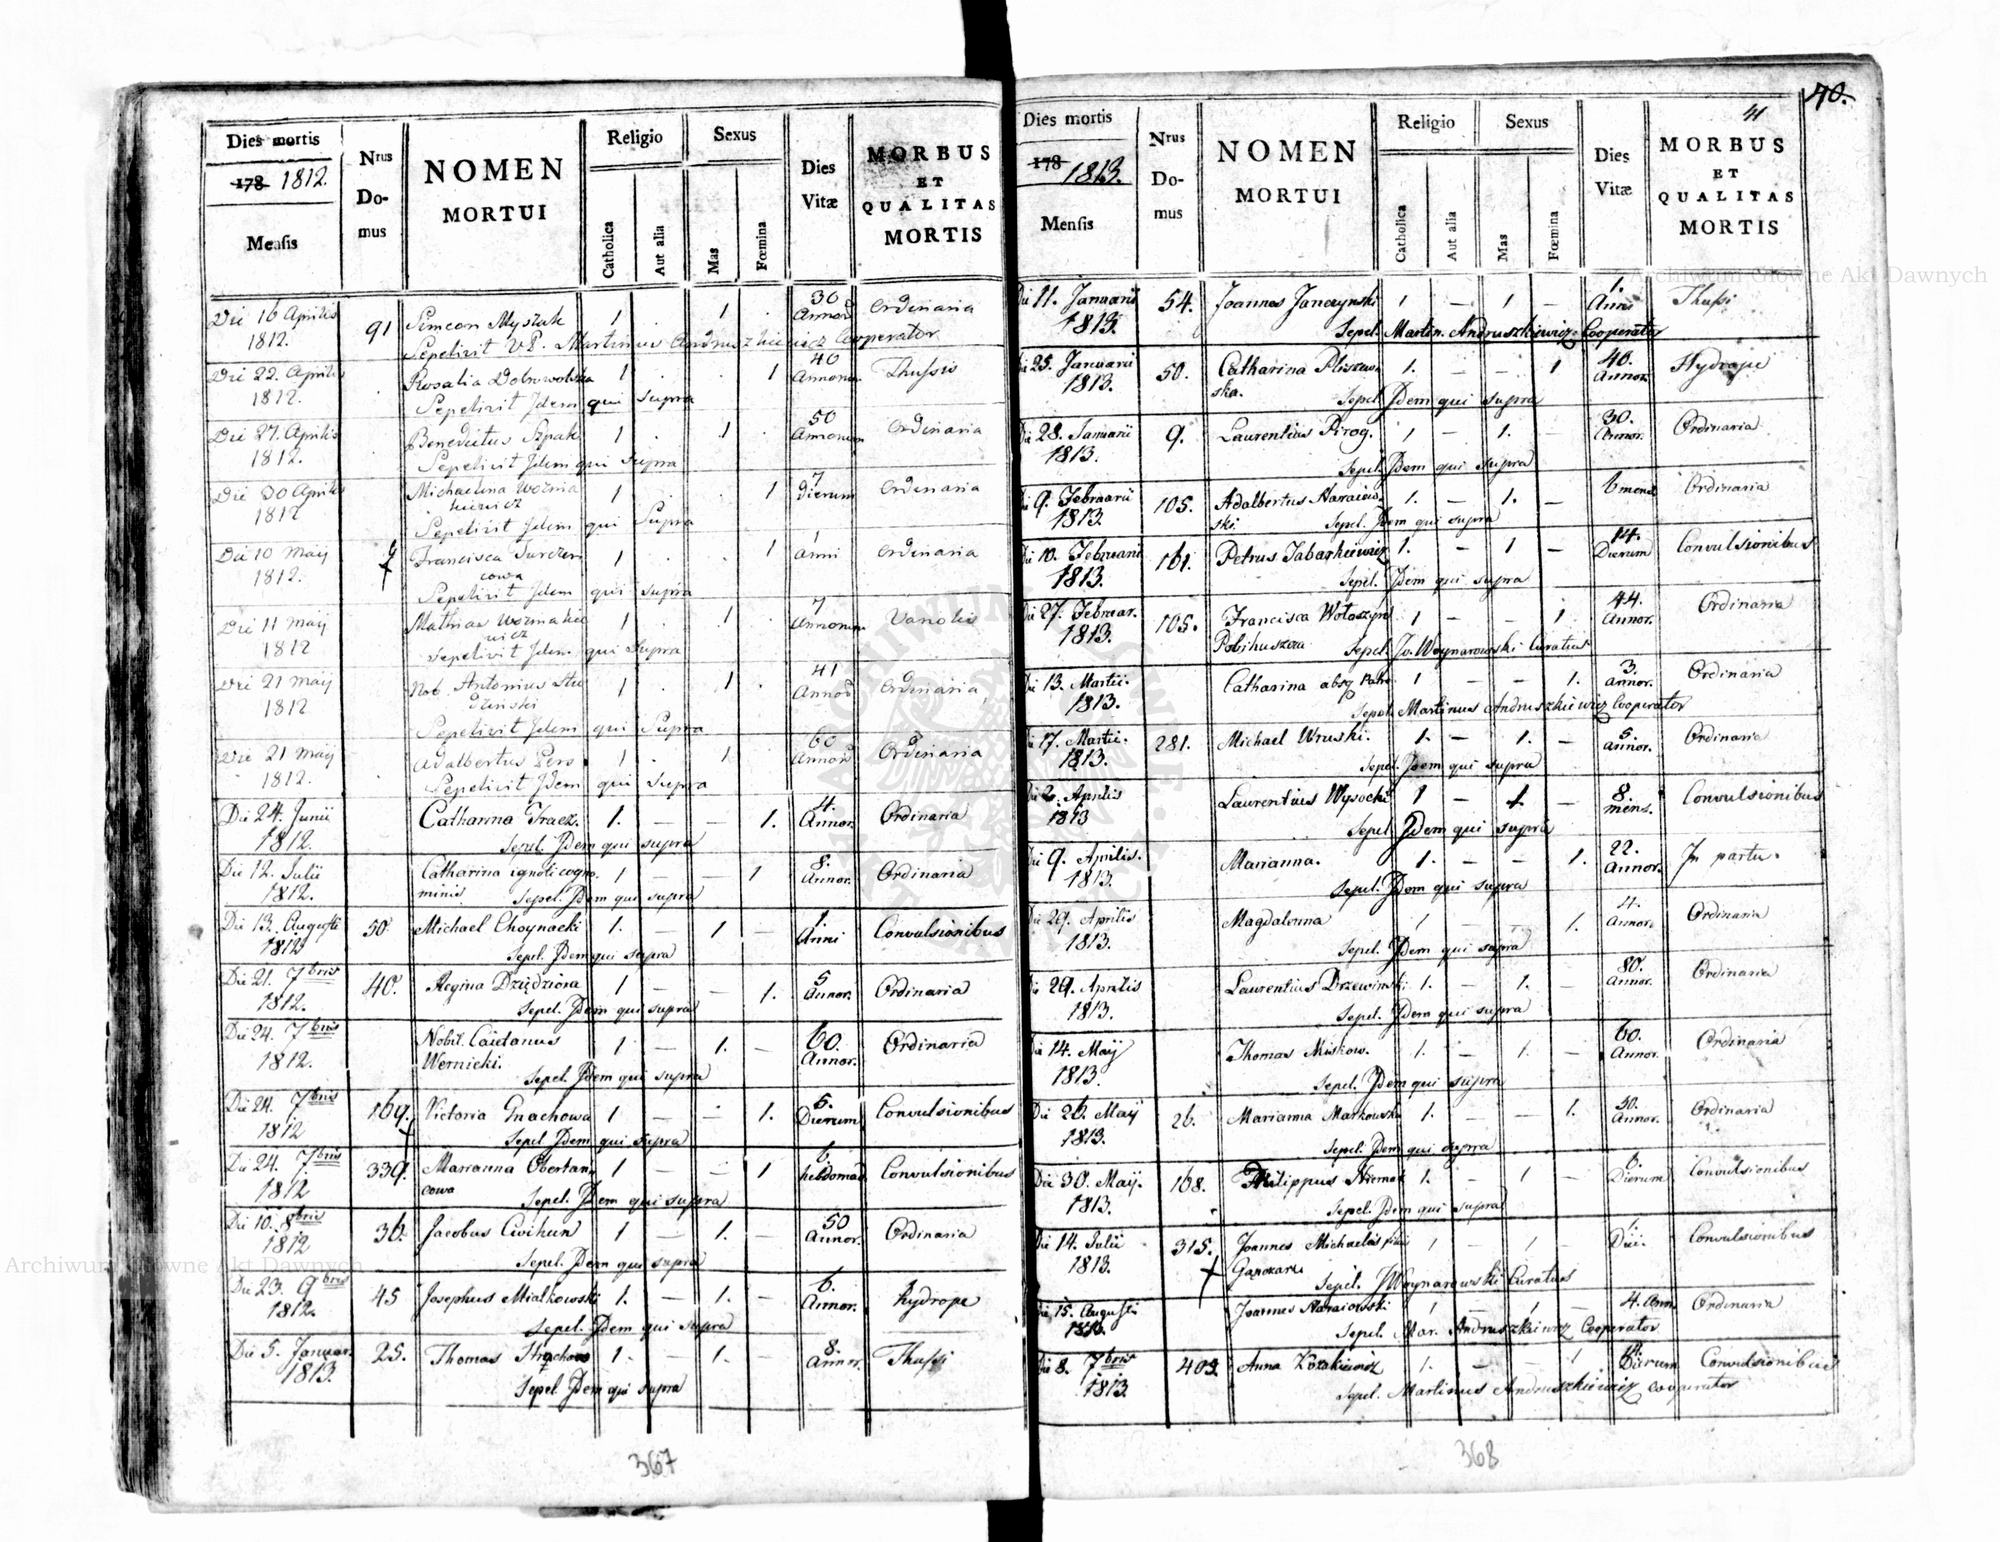 Dies mortis
178 1812.
Mensis
Nrus
Do-
mus
NOMEN
MORTUI
Religio
Catholica
Aut alia
Sexus
Mas
Fœmina
Dies
Vitæ
MORBUS
ET
QUALITAS
MORTIS
Die 16 Aprilis 91 Simeon Myszak 1 . 1 . 30 Ordinaria
1812. Annor
Sepelivit VP. Martinus Andruszkiewicz Cooperator
Die 22. Aprilis Rosalia Dobrowolska 1 . . 1 40 Thussis
1812. Annorum
Sepelivit Idem qui supra
Die 27. Aprilis Benedictus Szpak 1 . 1 . 50 Ordinaria
1812. Annorum
Sepelivit Idem qui supra
Die 30 Aprilis Michaelina Woznia 1 . . 1 7 Ordinaria
1812 kiewicz dierum
Sepelivit Idem qui Supra
Die 10 Maij Francisca 1 . . 1 1 Ordinaria
1812. cowa anni
Sepelivit Idem qui supra
Die 11 Maij Mathias Wozniakie 1 . 1 . 7 Variolis
1812 wicz Annorum
Sepelivit Idem qui supra
Die 21 Maij Nob. Antonius Stu 1 . 1 . 41 Ordinaria
1812 dzinski Annor
Sepelivit Idem qui Supra
Die 21 Maij Adalbertus Pero 1 . 1 . 60 Ordinaria
1812. Annor
Sepelivit Idem qui supra
Die 24. Junii Catharina Tracz. 1. — — 1. 4. Ordinaria
1812. Annor.
Sepel. Idem qui supra
Die 12. Julii Catharina ignoti cogno 1 — — 1 8. Ordinaria
1812. minis. Annor.
Sepel. Idem qui supra
Die 13. Augusti 50. Michael Choynacki 1. — 1 — 1. Convulsionibus
1812 Anni
Sepel. Idem qui supra
Die 21. 7bris 40. Regina Dziędziora 1 — — 1. 5 Ordinaria
1812. Annor.
Sepel. Idem qui supra
Die 24. 7bris Nobil. Caietanus 1 — 1. — 60. Ordinaria
1812. Wernicki. Annor.
Sepel. Idem qui supra
Die 24. 7bris 169. Victoria Gnachowa 1 — — 1. 5. Convulsionibus
1812 Dierum
Sepel Idem qui supra
Die 24. 7bris 339. Marianna Obertan 1 — — 1 6. Convulsionibus
1812 cowa hebdomad.
Sepel. Idem qui supra
Die 10. 8bris 36. Jacobus Cwihun 1 — 1. — 50 Ordinaria
1812 Annor.
Sepel. Idem qui supra
Die 23. 9bris 45 Josephus Mialkowski 1. — 1. — 6. hydrope
1812. Annor.
Sepel. Idem qui supra
Die 5. Januar. 25. Thomas 1. — 1. — 8. Thussi
1813. Annor.
Sepel. Idem qui supra
367
40.
41
Dies mortis
178 1813.
Mensis
Nrus
Do-
mus
NOMEN
MORTUI
Religio
Catholica
Aut alia
Sexus
Mas
Fœmina
Dies
Vitæ
MORBUS
ET
QUALITAS
MORTIS
Die 11. Januarii 54. Joannes Janczynski 1 — 1 — 1. Thussi
1813. Anni
Sepel. Martin. Andruszkiewicz Cooperator
25. Januarii 50. Catharina Pliszew 1. — — 1 40. Hydrope
1813. ska. Annor.
Sepel. Idem qui supra
28. Januarii 9. Laurentius Pirog. 1 — 1. — 30. Ordinaria
1813. Annor.
Sepel. Idem qui supra
9. Februarii 105. Adalbertus Naraiow 1. — 1. — 6 mens. Ordinaria
1813. ski.
Sepel. Idem qui supra
10. Februarii 161. Petrus Tabaxkiewicz 1. — 1 — 14. Convulsionibus
1813. Dierum
Sepel. Idem qui supra
27. Februar. 105. Francisca Woloszyn 1 — — 1 44. Ordinaria
1813. Pobihuszcza Annor.
Sepel. Jo. Woynarowski Curatus
13. Martii. Catharina absq Patre 1 — — 1. 3. Ordinaria
1813. Annor.
Sepel. Martinus Andruszkiewicz Cooperator
17. Martii. 281. Michael Wruski. 1. — 1. — 5. Ordinaria
1813. Annor.
Sepel. Idem qui supra
2. Aprilis Laurentius Wysocki 1 — 1. — 8. Convulsionibus
1813 mens.
Sepel. Idem qui supra
9. Aprilis. Marianna. 1. — — 1. 22. In partu.
1813. Annor.
Sepel. Idem qui supra
29. Aprilis Magdalenna 1 — — 1. 4. Ordinaria
1813. Annor.
Sepel. Idem qui supra
29. Aprilis Laurentius Drzewinski 1. — 1. — 80. Ordinaria
1813. Annor.
Sepel. Idem qui supra
14. Maij Thomas Miskow. 1. — 1. — 60. Ordinaria
1813. Annor.
Sepel. Idem qui supra
Die 26. Maij 26. Marianna Markowska 1. — — 1. 50. Ordinaria
1813. Annor.
Sepel. Idem qui supra
Die 30. Maij. 168. Philippus 1. — 1 — 6. Convulsionibus
1813. Dierum
Sepel. Idem qui supra
14. Julii 315. Joannes Michaelis filius 1 — 1 — 1. Convulsionibus
1813. Diei.
Sepel. J Woynarowski Curatus
15. Augusti Joannes Naraiowski 1 — 1 — 4. Ann. Ordinaria
1813.
Sepel. Mar. Andruszkiewicz Cooperator
8. 7bris 403. Anna Kozakiewicz 1. — — 1 Dierum Convulsionibus
1813.
Sepel. Martinus Andruszkiewicz cooperator
368
Archiwum Główne Akt Dawnych
Archiwum Główne Akt Dawnych